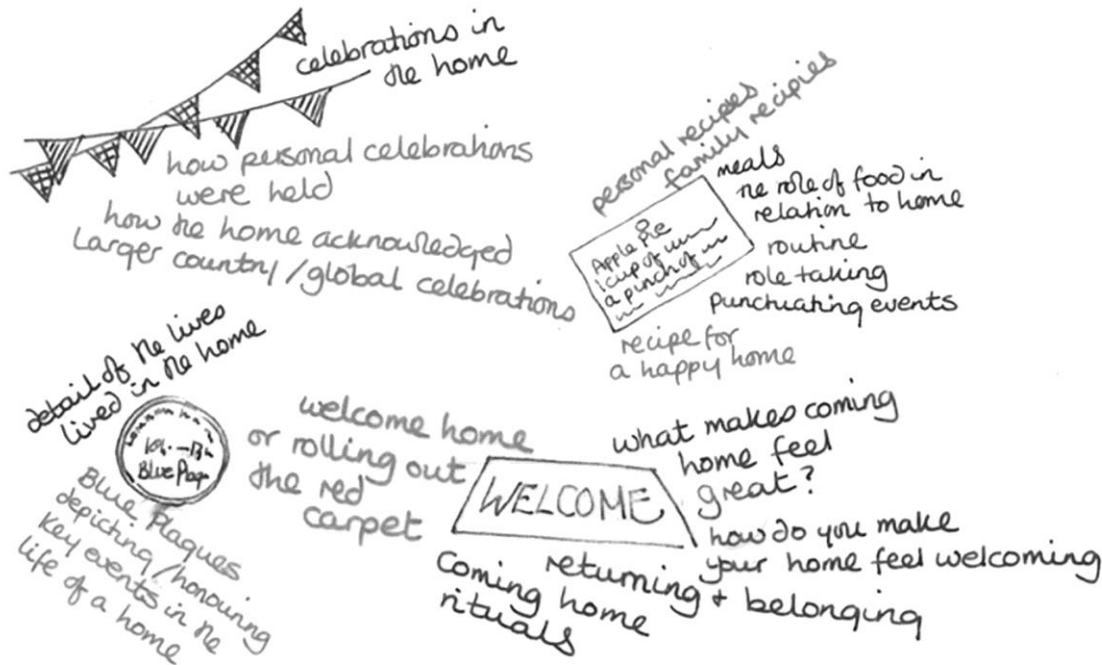 celebrations in
the home
how personal celebrations
were held
how the home acknowledged
larger country/global celebrations
personal recipies
family recipies
meals
the role of food in
relation to home
routine
role taking
punctuating events
Apple Pie
1 cup of
a punch of
recipe for
a happy home
detail of the lives
lived in the home
Blue Plaq
Blue Plaques
depicting/honouring
key events in the
life of a home
welcome home
or rolling out
the red
carpet
WELCOME
what makes coming
home feel
great?
how do you make
your home feel welcoming
returning + belonging
Coming home
rituals